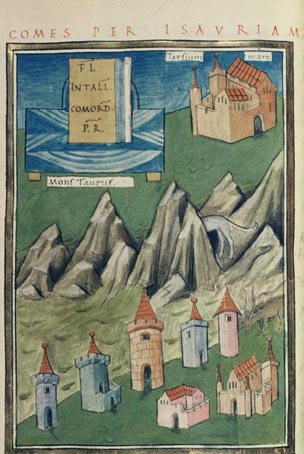 COMES PER ISAVRIAM
FL.
INTALL
COMORD.
P.R.
Tarsium mare
Mons Taurus.